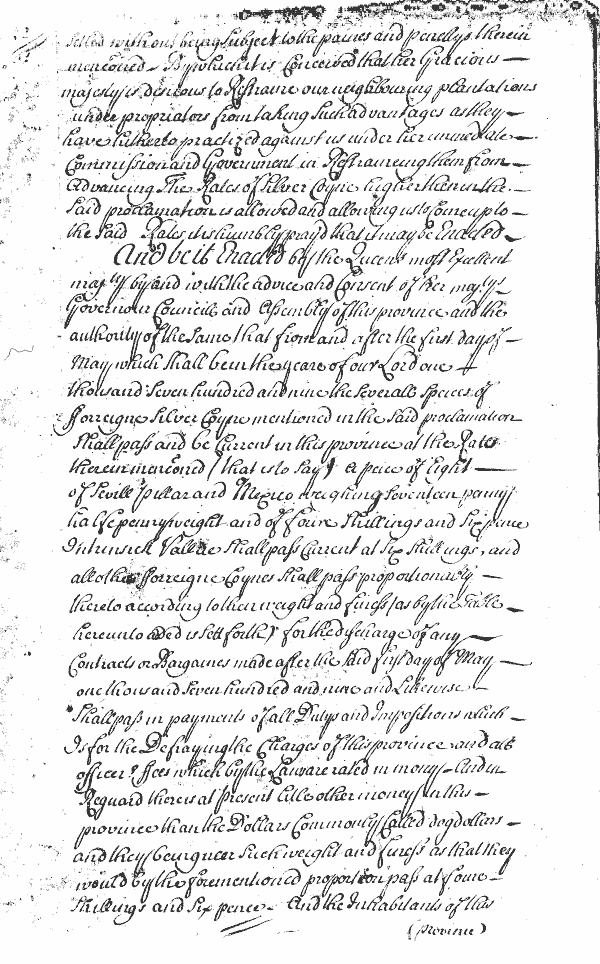 setled without being subject to the paines and penaltys therein
mencõned - By which it is Conceived that her Gracious -
majesty is desirous to Restraine our neighbouring plantations
under propriators from taking such advantages as they -
have hitherto practized against us under her immediate -
Commission and Government in Restraineing them from -
advancing The Rates of Silver Coyne higher then in the -
Said proclamation is allowed and allowing us to come up to -
the Said Rates it is humbly prayd that it may be Enacted -
And be it Enacted by the Queens most Excellent
majty by and with the advice and Consent of her majtys -
Governour Councile and Assembly of this province and the
authority of the Same that from and after the first day of -
May which Shall be in the yeare of our Lord one -
thousand Seven hundred and nine the Severall Speces of
fforreigne Silver Coyne mentioned in the Said proclamation
Shall pass and be Current in this province at the Rates
therein mencõned (that is to Say) a peice of Eight -
of Sevill pillar and Mexico weighing Seventeen penny
halfe pennyweight and of foure Shillings and Six pence
Intrinsick Vallue Shall pass Current at Six Shillings, and
all other fforreigne Coynes Shall pass proportionately -
thereto according to their weight and finess (as by the Table -
hereunto aded is Sett forth) for the discharge of any -
Contracts or Bargaines made after the Said first day of May -
one thousand Seven hundred and nine and Likewise -
Shall pass in payments of all Dutys and Impositions which -
Is for the Defraying the Charges of this province and all
officers ffees which by the Law are rated in mony - And in
Reguard there is at present little other money in this -
province than the Dollars Commonly Called dogdollars -
and they being near Such weight and finess as that they
would by the forementioned proportion pass at foure -
Shillings and Six pence - And the Inhabitants of this
(province)